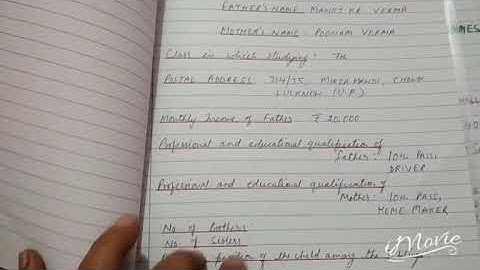 FATHER'S NAME MANOJ KR VERMA
MOTHER'S NAME: POONAM VERMA
Class in which studying: 7th
POSTAL ADDRESS: 314/75, MIRZA MANDI, CHOWK
LUCKNOW (U.P.)
Monthly Income of Father ₹ 20,000
Professional and educational qualification of
father: 10th PASS,
DRIVER
Professional and educational qualification of
Mother: 10th PASS,
HOME MAKER
No of brothers
No of sisters
position of the child among the
iMovie